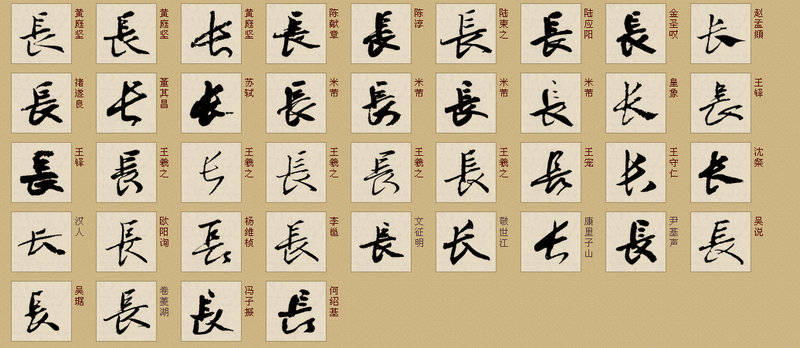 長 黄庭坚 長 黄庭坚 长 黄庭坚 長 陈献章 長 陈淳 長 陆柬之 長 陆应阳 長 金圣叹 长 赵孟頫
長 褚遂良 长 董其昌 长 苏轼 長 米芾 長 米芾 長 米芾 長 米芾 长 皇象 長 王铎
長 王铎 長 王羲之 长 王羲之 長 王羲之 長 王羲之 長 王羲之 長 王宠 长 王守仁 长 沈粲
长 汉人 長 欧阳询 長 杨维桢 長 李邕 長 文征明 长 敬世江 长 康里子山 長 尹基声 長 吴说
長 吴琚 長 卷菱湖 長 冯子振 長 何绍基